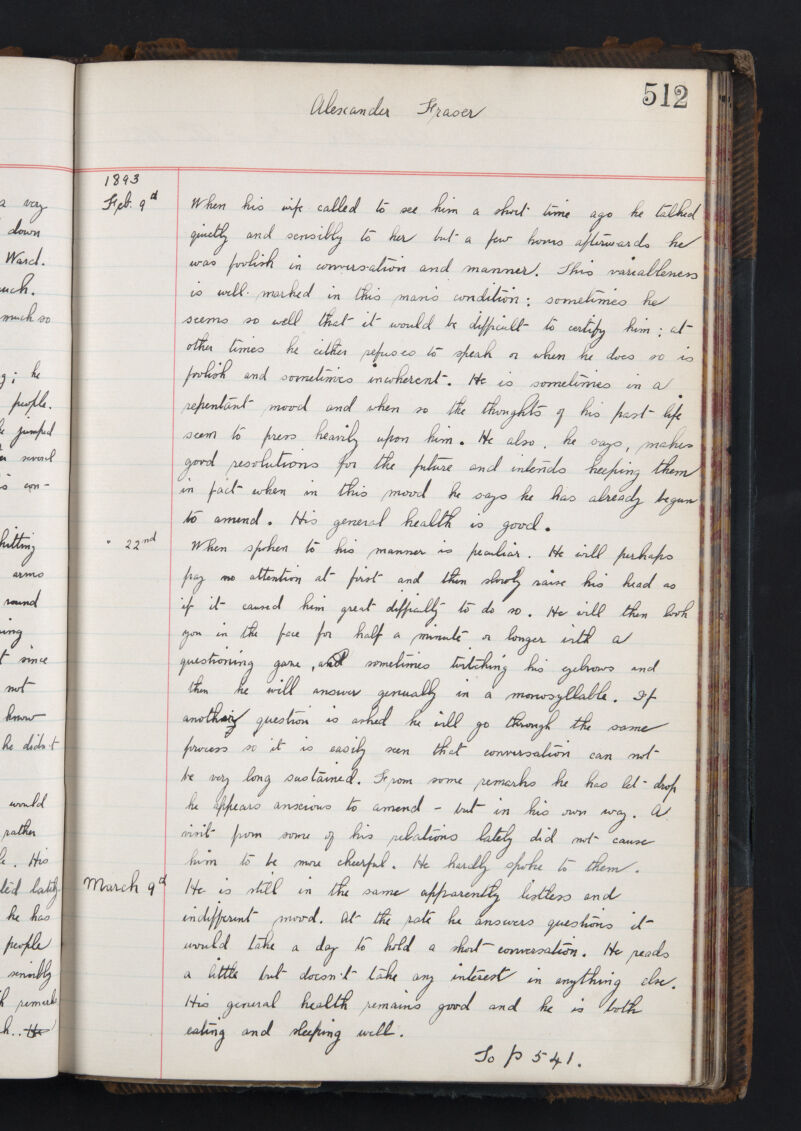 512
Alexander Fraser
1893
Feb. 9d
When his wife called to see him a short time ago he talked
quietly and sensibly to her but a few hours afterwards he
was foolish in conversation and manner. This variableness
is well-marked in this man's condition: sometimes he
seems so well that it would be difficult to certify him: at
other times he either refuses to speak or when he does so is
foolish and sometimes incoherent. He is sometimes in a
repentant mood and when so the thoughts of his past life
seem to press heavily upon him. He also, he says, makes
good resolutions for the future and intends keeping them
in fact when in this mood he says he has already begun
to amend. His general health is good.
" 22nd
When spoken to his manner is peculiar. He will perhaps
pay no attention at first and then slowly raise his head as
if it caused him great difficulty to do so. He will then look
you in the face for half a minute or longer with a
questioning gaze, and sometimes twitching his eyebrows and
then he will answer genually in a monosyllable. If
another question is asked he will go through the same
process so it is easily seen that conversation can not
be very long sustained. From some remarks he has let-drop
he appears anxious to amend - but in his own way. A
visit from some of his relations lately did not cause
him to be more cheerful. He hardly spoke to them.
March 9d
He is still in the same apparently listless and
indifferent mood. At the rate he answers questions it
would take a day to hold a short conversation. He reads
a little but doesn't take any interest in anything else.
His general health remains good and he is both
eating and sleeping well.
To p 541.
a very
down
Ward.
much.
much so
; he
people.
jumped
several
con-
hitting
arms
round
since
not
know
he didn't
would
rather
. His
lately
he has
people
sensibly
remarks
. He